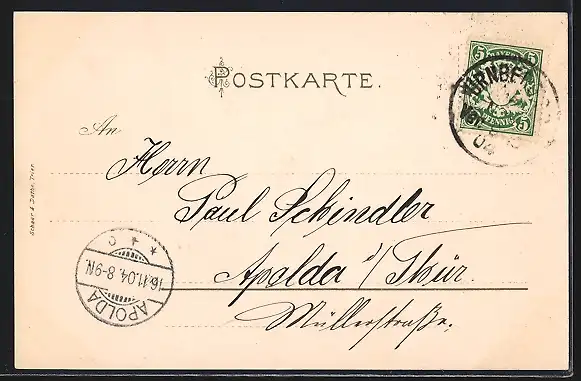 POSTKARTE.
5 BAYERN 5
PFENNIG 5
NÜRNBERG
NOV.
04
An
Herrn
Paul Schindler
Apolda i/Thür.
Müllerstraße.
APOLDA
16.11.04. 8-9N.
* c *
Schaar & Dathe, Trier.